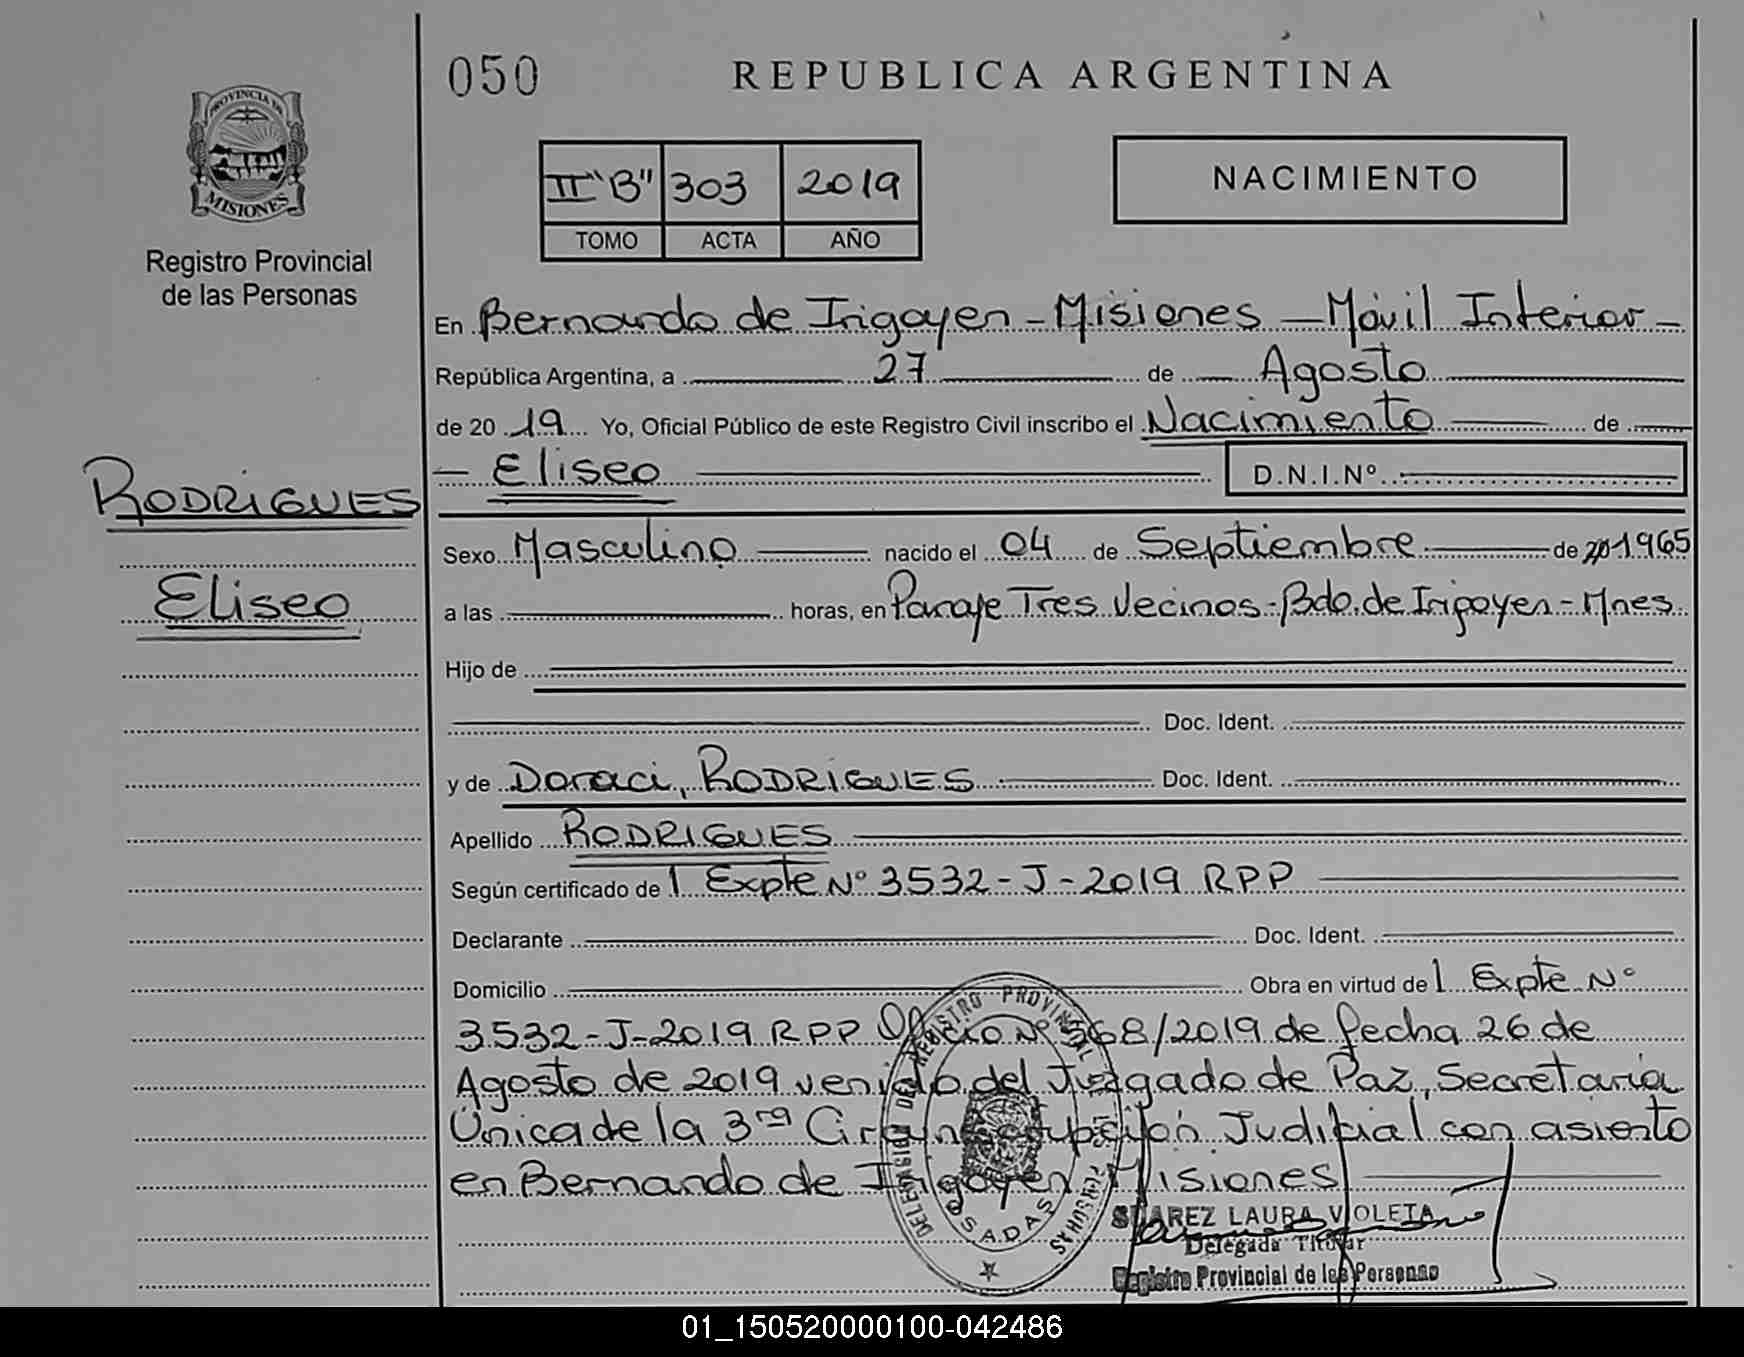 050
REPUBLICA ARGENTINA
PROVINCIA DE
MISIONES
Registro Provincial
de las Personas
II "B" 303 2019
TOMO ACTA AÑO
NACIMIENTO
En Bernardo de Irigoyen - Misiones - Móvil Interior -
República Argentina, a 27 de Agosto
de 2019 Yo, Oficial Público de este Registro Civil inscribo el Nacimiento de
Eliseo D.N.I.Nº
RODRIGUES
Eliseo
Sexo Masculino nacido el 04 de Septiembre de 1965
a las horas, en Paraje Tres Vecinos - Bdo. de Irigoyen - Mnes.
Hijo de
Doc. Ident.
y de Doraci, RODRIGUES Doc. Ident.
Apellido RODRIGUES
Según certificado de 1 Expte Nº 3532-J-2019 RPP
Declarante Doc. Ident.
Domicilio Obra en virtud de 1 Expte Nº
3532-J-2019 RPP Oficio Nº 368/2019 de fecha 26 de
Agosto de 2019 venido del Juzgado de Paz, Secretaria
Única de la 3ra Circunscripción Judicial con asiento
en Bernardo de Irigoyen Misiones
DELEGACION DEL REGISTRO PROVINCIAL DE LAS PERSONAS
POSADAS
SUAREZ LAURA VIOLETA
Delegada Titular
Registro Provincial de las Personas
01_150520000100-042486